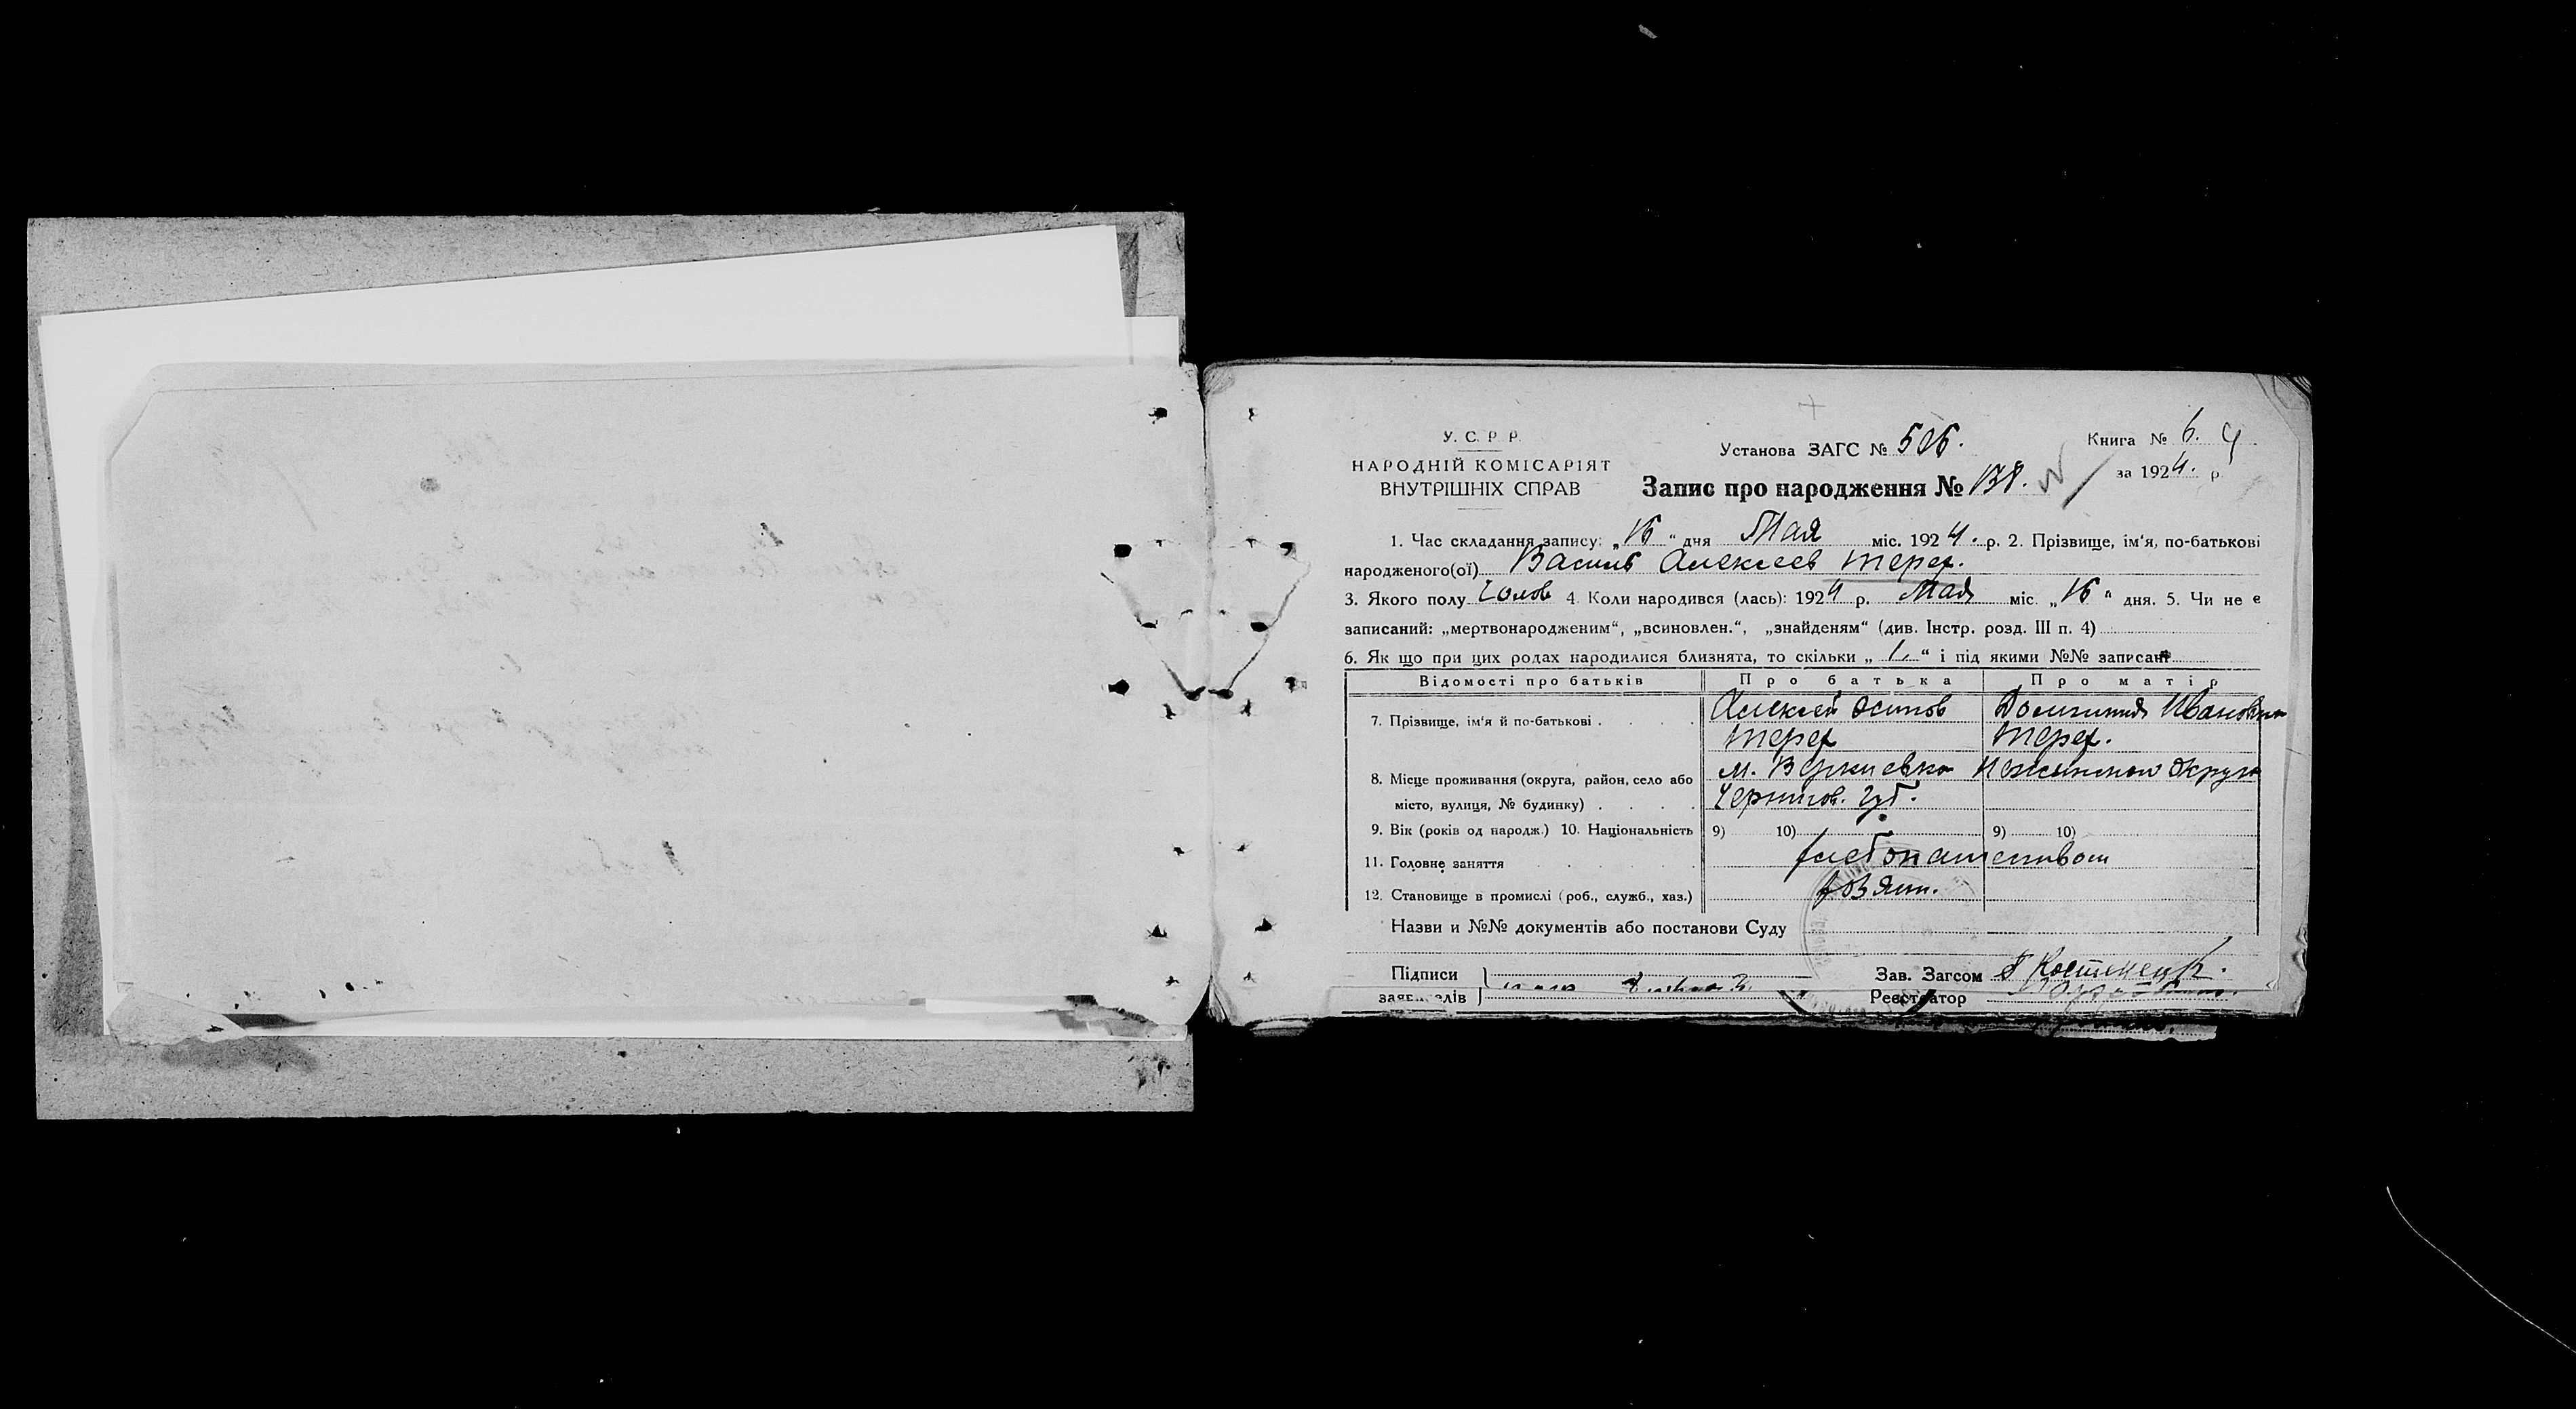 У. С. Р. Р.
НАРОДНІЙ КОМІСАРІЯТ
ВНУТРІШНІХ СПРАВ
Установа ЗАГС № 506.
Книга № 6.
за 1924. р.
Запис про народження № 138.
1. Час складання запису: „16“ дня Мая міс. 1924. р. 2. Прізвище, ім'я, по-батькові
народженого(ої) Василь Алексеев Терех.
3. Якого полу Чолов 4. Коли народився (лась): 1924 р. Мая міс. „16“ дня. 5. Чи не є
записаний: „мертвонародженим“, „всиновлен.“, „знайденям“ (див. Інстр. розд. III п. 4)
6. Як що при цих родах народилися близнята, то скільки „1.“ і під якими №№ записані
Відомості про батьків Про батька Про матір
7. Прізвище, ім'я й по-батькові . . . . Алексей Осипов Домникия Ивановна
Терех Терех.
8. Місце проживання (округа, район, село або м. Веркиевка Нежинской округи
місто, вулиця, № будинку) . . . . Чернигов. Губ.
9. Вік (років од народж.) 10. Національність 9) 10) 9) 10)
11. Головне заняття хлебопашеством
12. Становище в промислі (роб., служб., хаз.) хозяин.
Назви и №№ документів або постанови Суду
Підписи Зав. Загсом Костенецк.
заявителів Реєстратор